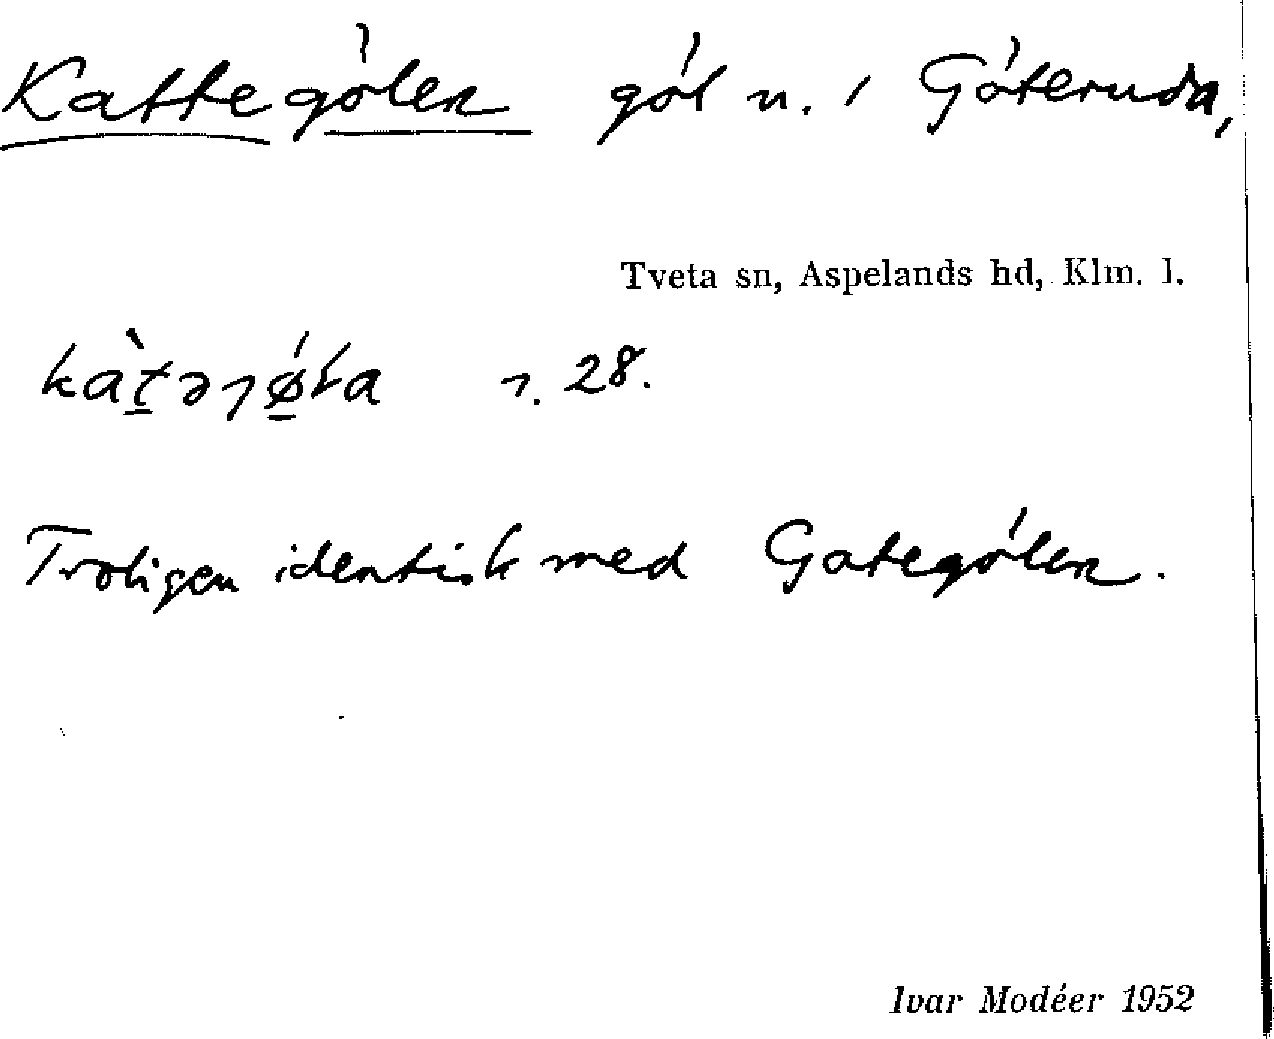 Kattegölen göl n. i Göteruda,
Tveta sn, Aspelands hd, Klm. l.
r. 28.
Troligen identisk med Gategölen.
Ivar Modéer 1952